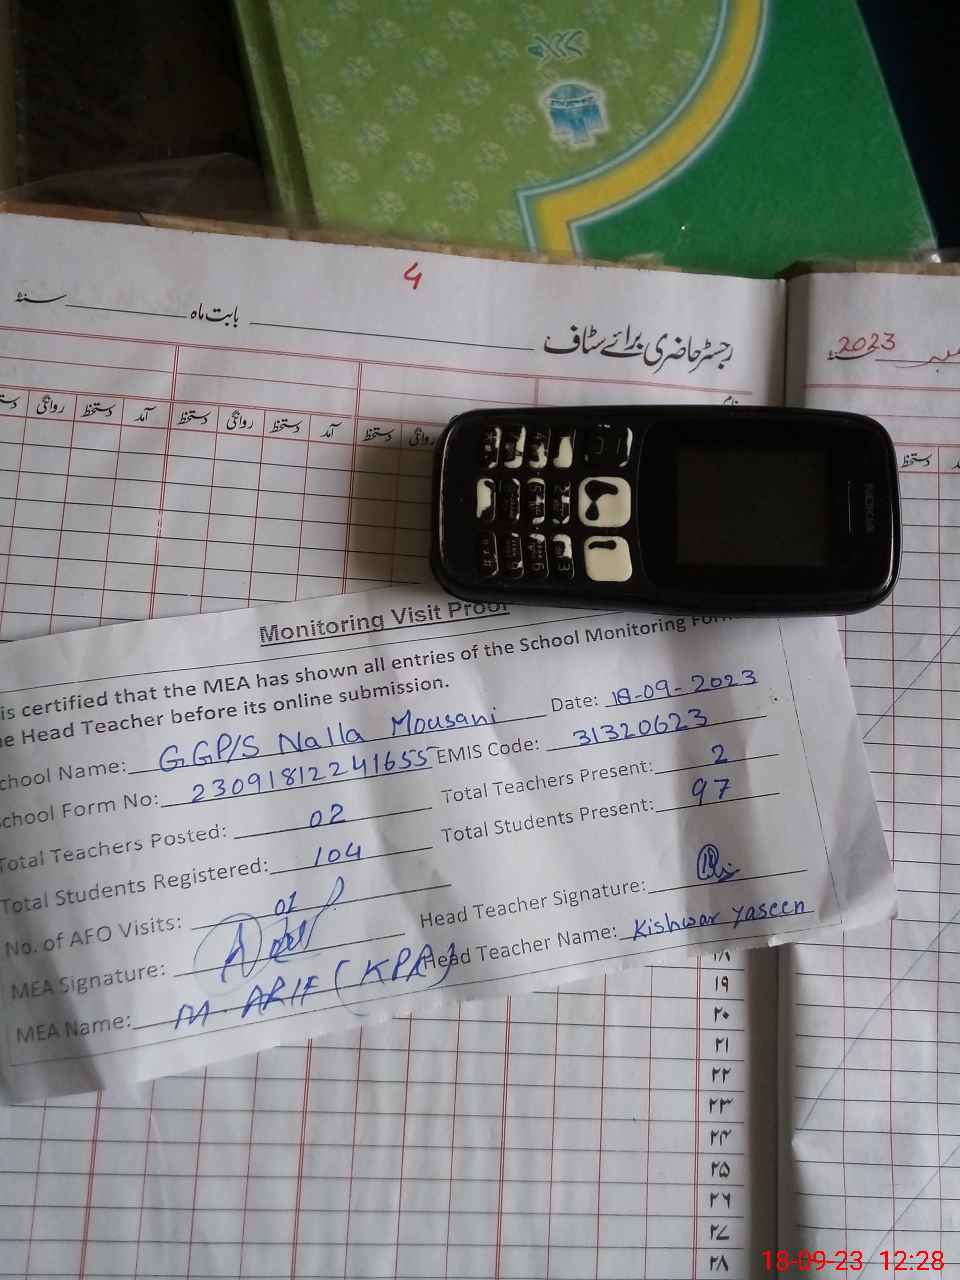 4
رجسٹر حاضری برائے سٹاف ــــــ بابت ماہ ــــــ سنہ
2023
نام
روانگی دستخط آمد دستخط روانگی دستخط آمد دستخط روانگی
دستخط
NOKIA
Monitoring Visit Proof
is certified that the MEA has shown all entries of the School Monitoring
Head Teacher before its online submission.
School Name: GGP/S Nalla Mousani Date: 18-09-2023
School Form No: 23091812241655 EMIS Code: 31320623
Total Teachers Posted: 02 Total Teachers Present: 2
Total Students Registered: 104 Total Students Present: 97
No. of AFO Visits: 01 Head Teacher Signature:
MEA Signature: Head Teacher Name: Kishwar Yaseen
MEA Name: M. ARIF (KPA)
۱۸
۱۹
۲۰
۲۱
۲۲
۲۳
۲۴
۲۵
۲۶
۲۷
۲۸
18-09-23 12:28